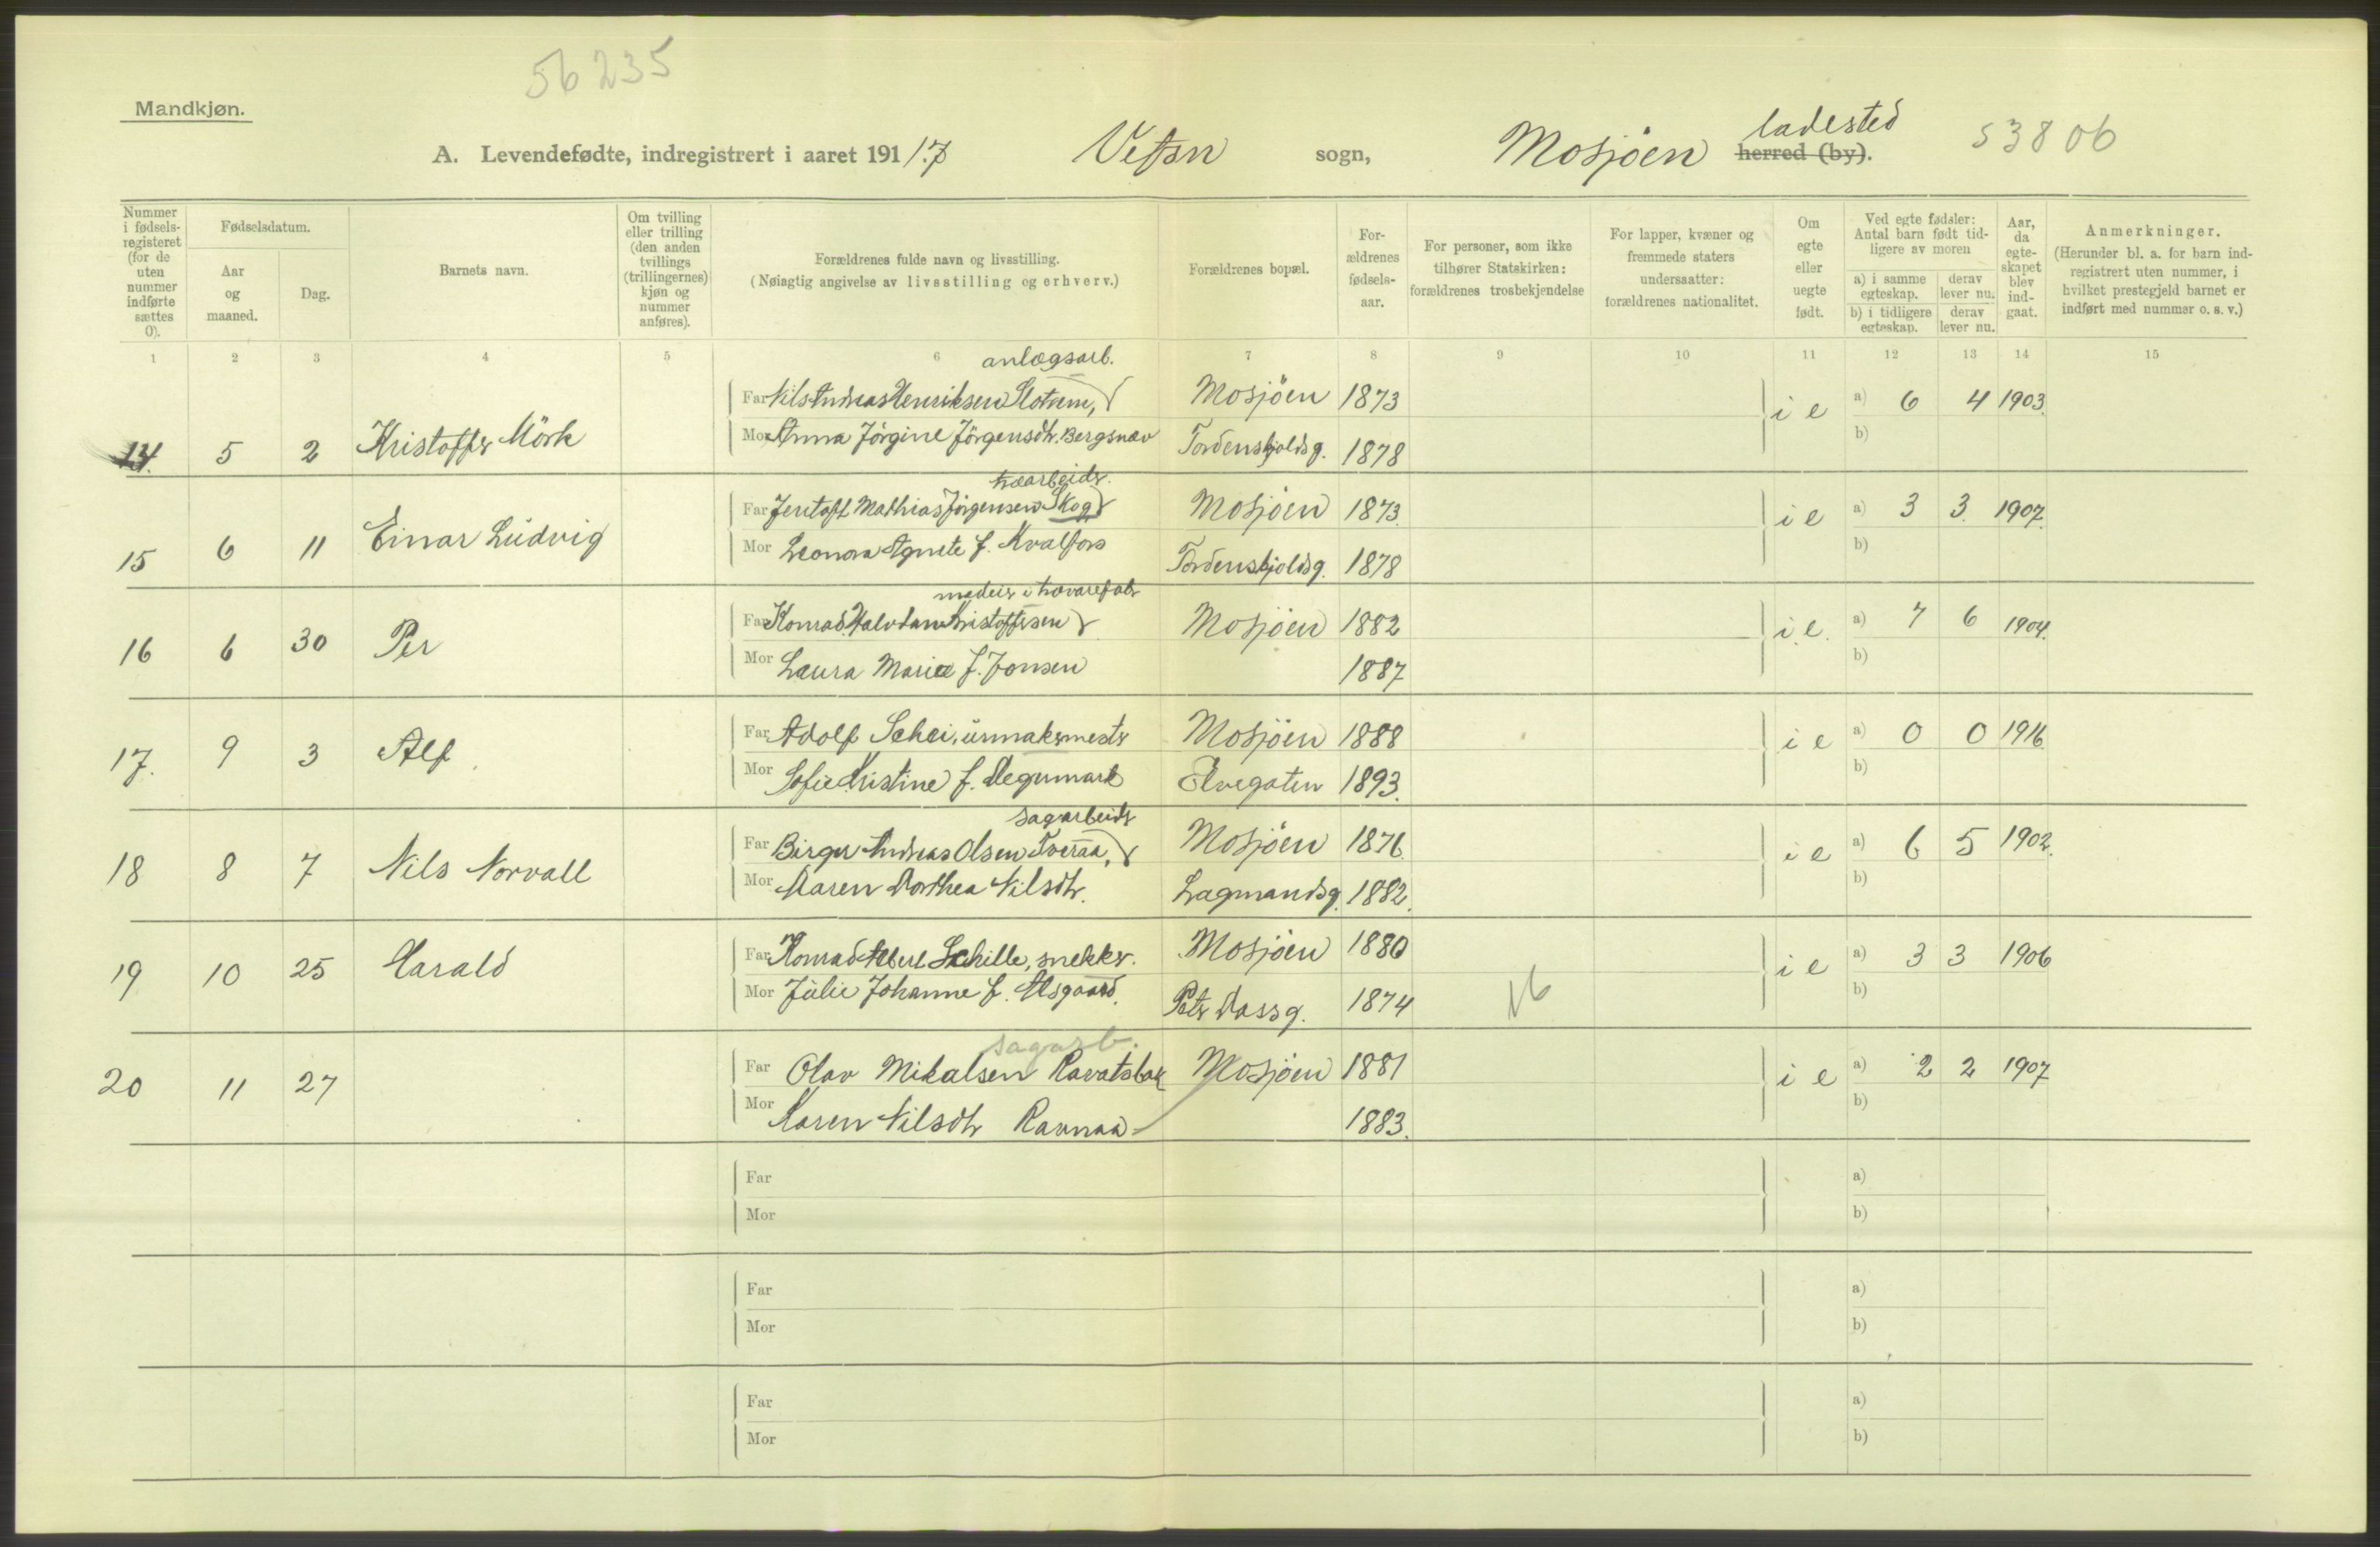 56235
Mandkjøn.
A. Levendefødte, indregistrert i aaret 1917 Vefsn sogn, Mosjöen ladested herred (by). 53806
Nummer i fødsels-registeret (for de uten nummer indførte sættes 0).
Fødselsdatum.
Aar og maaned.
Dag.
Barnets navn.
Om tvilling eller trilling (den anden tvillings (trillingernes) kjøn og nummer anføres).
Forældrenes fulde navn og livsstilling.
(Nøiagtig angivelse av livsstilling og erhverv.)
Forældrenes bopæl.
For-ældrenes fødsels-aar.
For personer, som ikke tilhører Statskirken: forældrenes trosbekjendelse
For lapper, kvæner og fremmede staters undersaatter: forældrenes nationalitet.
Om egte eller uegte født.
Ved egte fødsler: Antal barn født tid-ligere av moren
a) i samme egteskap.
derav lever nu.
b) i tidligere egteskap.
derav lever nu.
Aar, da egte-skapet blev ind-gaat.
Anmerkninger.
(Herunder bl. a. for barn ind-registrert uten nummer, i hvilket prestegjeld barnet er indført med nummer o. s. v.)
1 2 3 4 5 6 7 8 9 10 11 12 13 14 15
anlægsarb.
Far Nils Andreas Henriksen Slotrem, Mosjöen 1873 i e a) 6 4 1903.
14. 5 2 Kristoffer Mörk
Mor Anna Jörgine Jörgensdtr. Bergsnev Tordenskjoldsg. 1878 b)
træarbeider.
Far Jentoft Mathias Jörgensen Skog Mosjöen 1873. i e a) 3 3. 1907.
15 6 11 Einar Ludvig
Mor Leonora Agnete f. Kvalfors Tordenskjoldsg. 1878 b)
i trævarefabr
Far Konrad Halvdan Kristoffersen Mosjöen 1882 i e. a) 7 6 1904.
16 6 30 Per
Mor Laura Marie f. Jonsen 1887 b)
Far Adolf Schei, urmakermester Mosjöen 1888 i e a) 0 0 1916
17. 9 3 Alf
Mor Sofie Kristine f. Degermark Elvegaten 1893. b)
sagarbeider
Far Birger Andreas Olsen Tveraa, Mosjöen 1876 i e a) 6 5 1902.
18 8 7 Nils Norvall
Mor Maren Dorthea Nilsdtr. Lagmandsg. 1882. b)
Far Konrad Albert Schille, snekker. Mosjöen 1880 i e a) 3 3 1906
19 10 25 Harald
Mor Julie Johanne f. Alsgaard. Peter Dassg. 1874 b)
sagarb.
Far Olav Mikalsen Ravatsbak Mosjöen 1881 i e a) 2 2 1907
20 11 27
Mor Karen Nilsdtr Ravnaa 1883. b)
Far a)
Mor b)
Far a)
Mor b)
Far a)
Mor b)